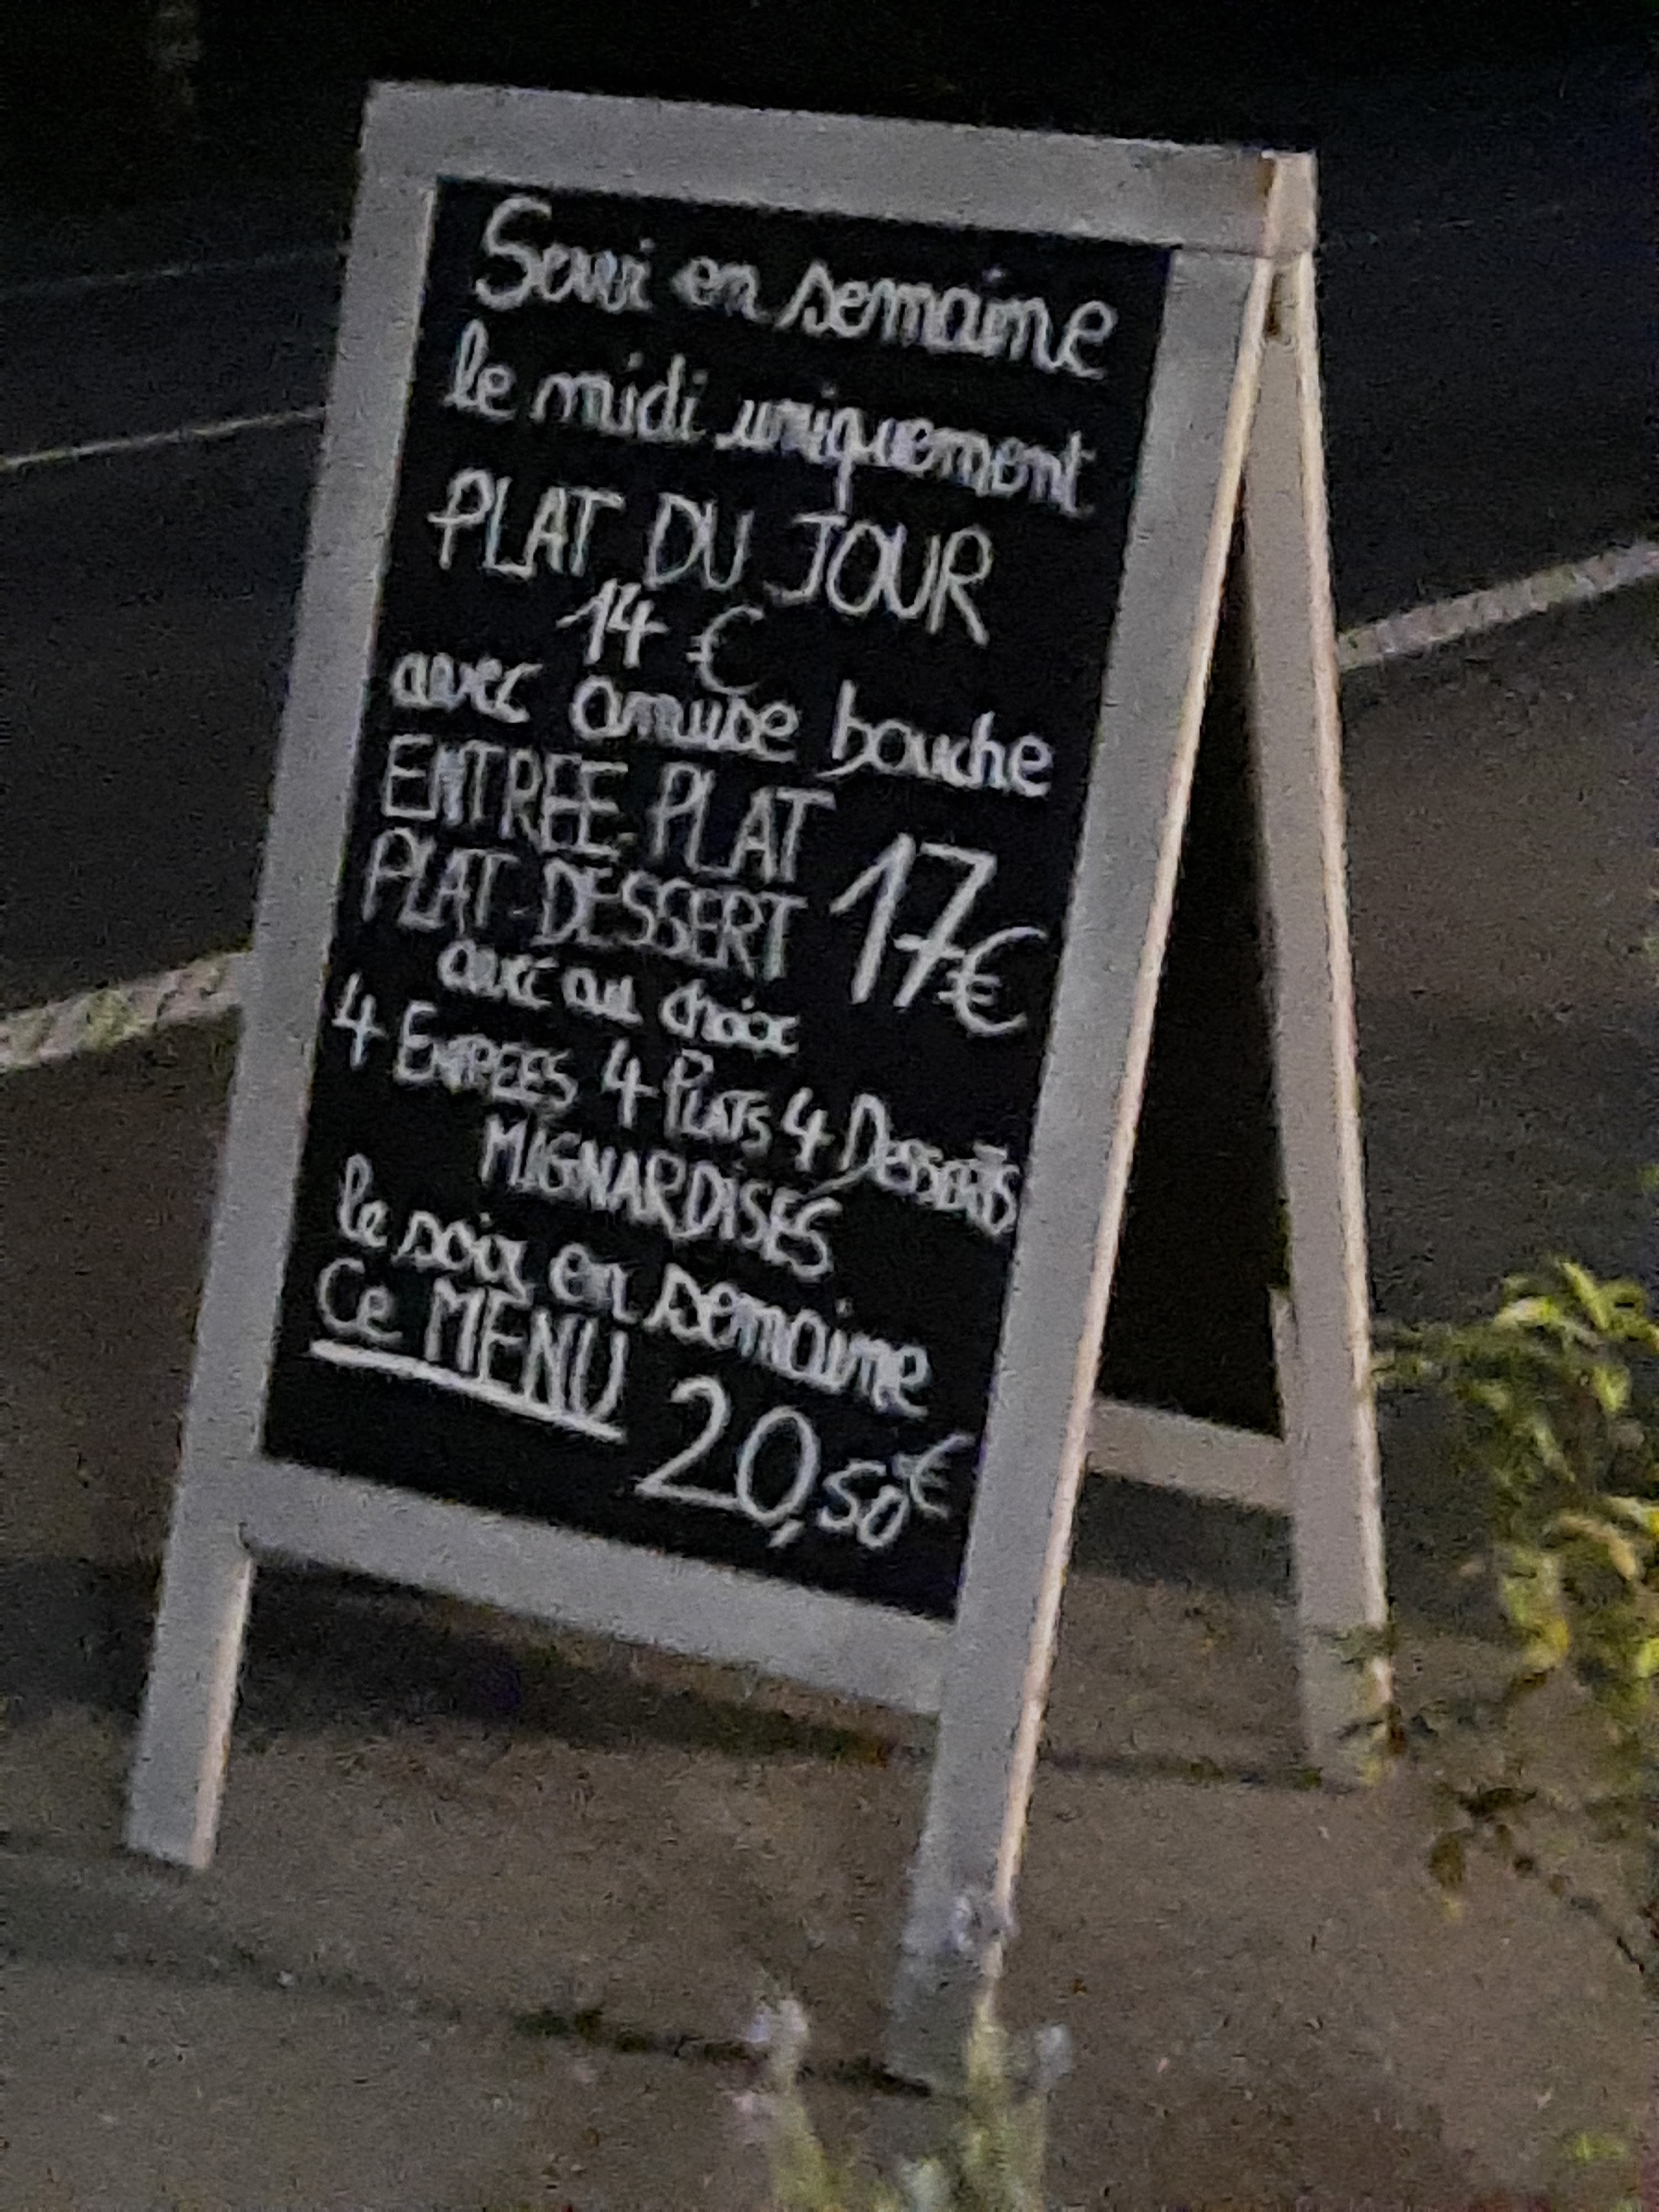 Servi en semaine
le midi uniquement
PLAT DU JOUR
14 €
avec amuse bouche
ENTREE PLAT
PLAT-DESSERT 17€
avec au choix
4 ENTREES 4 PLATS 4 DESSERTS
MIGNARDISES
le soir en semaine
Ce MENU 20,50€